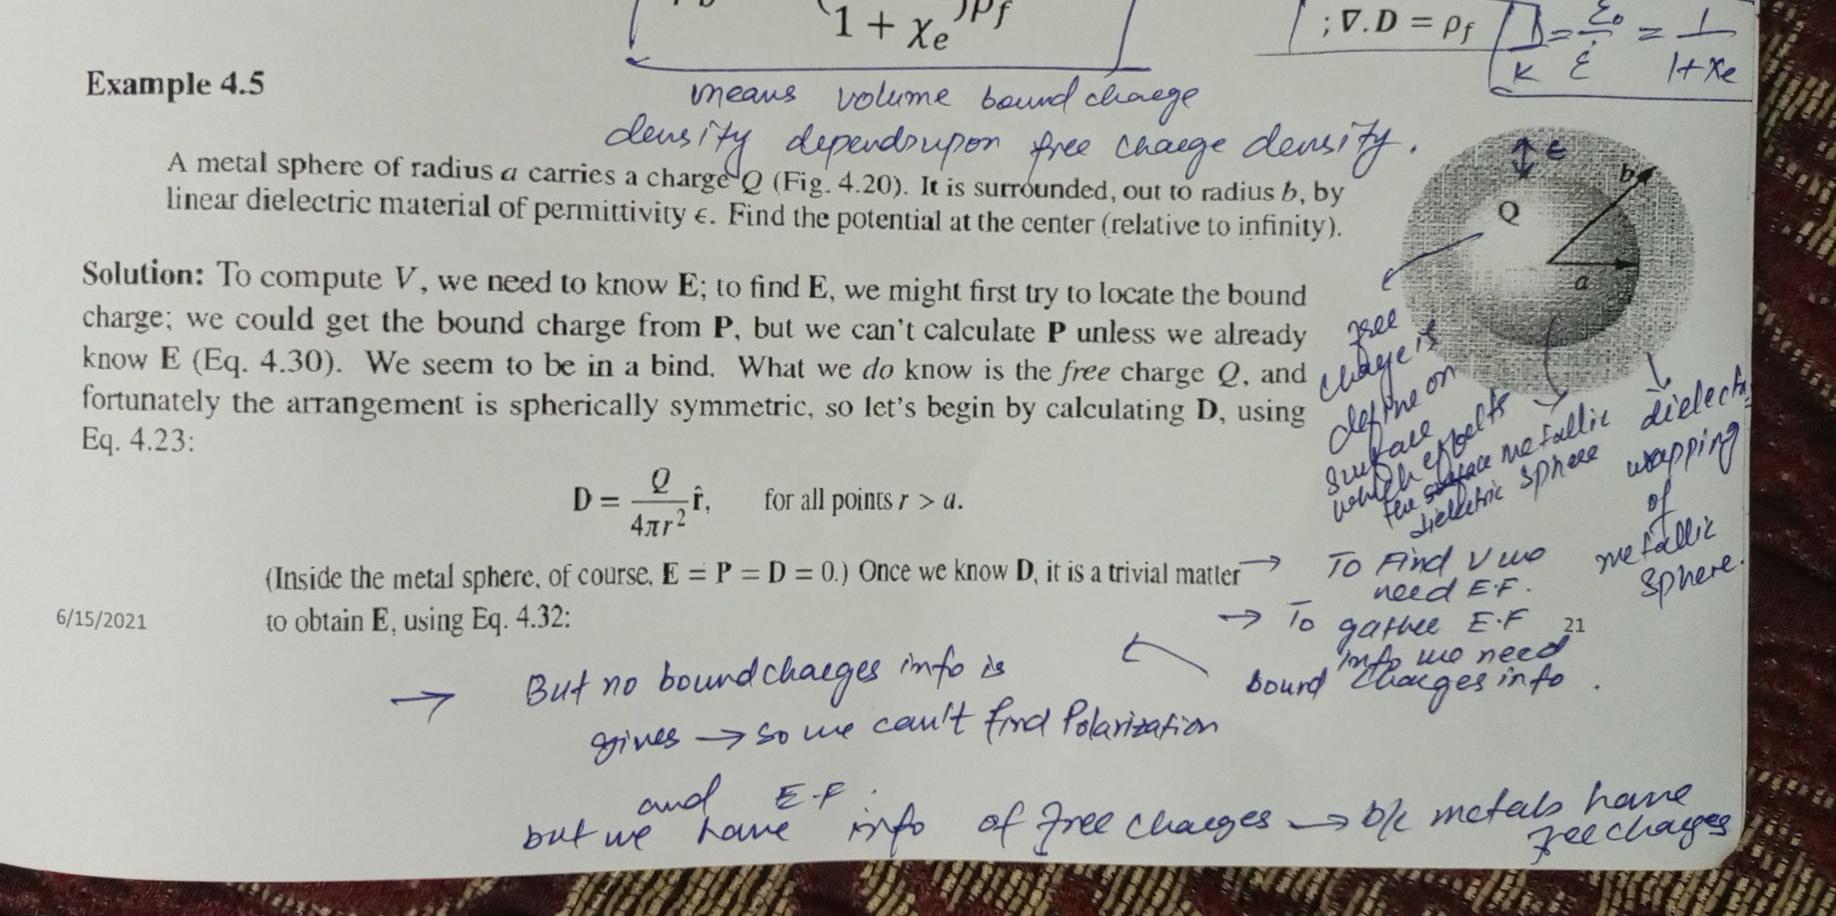 1 + χe )ρf
; ∇.D = ρf
1/K = ε₀/ε = 1/1+χe
Example 4.5
means volume bound chaege
density depends upon free chaege density.
A metal sphere of radius a carries a charge Q (Fig. 4.20). It is surrounded, out to radius b, by
linear dielectric material of permittivity ϵ. Find the potential at the center (relative to infinity).
Solution: To compute V, we need to know E; to find E, we might first try to locate the bound
charge; we could get the bound charge from P, but we can't calculate P unless we already
know E (Eq. 4.30). We seem to be in a bind. What we do know is the free charge Q, and
fortunately the arrangement is spherically symmetric, so let's begin by calculating D, using
Eq. 4.23:
D = Q/4πr² r̂, for all points r > a.
(Inside the metal sphere, of course, E = P = D = 0.) Once we know D, it is a trivial matter
to obtain E, using Eq. 4.32:
6/15/2021
21
ϵ
b
Q
a
free
charge is
define on
surface
which
the
dielectric
metallic
sphere
dielect
wrapping
of
metallic
sphere.
→ To Find V we
need E.F.
→ To gathee E.F
info we need
bound chaeges info .
→ But no bound chaeges info is
gives → so we can't find Polarization
and E.F.
but we have info of free chaeges → b/c metals have
free chages